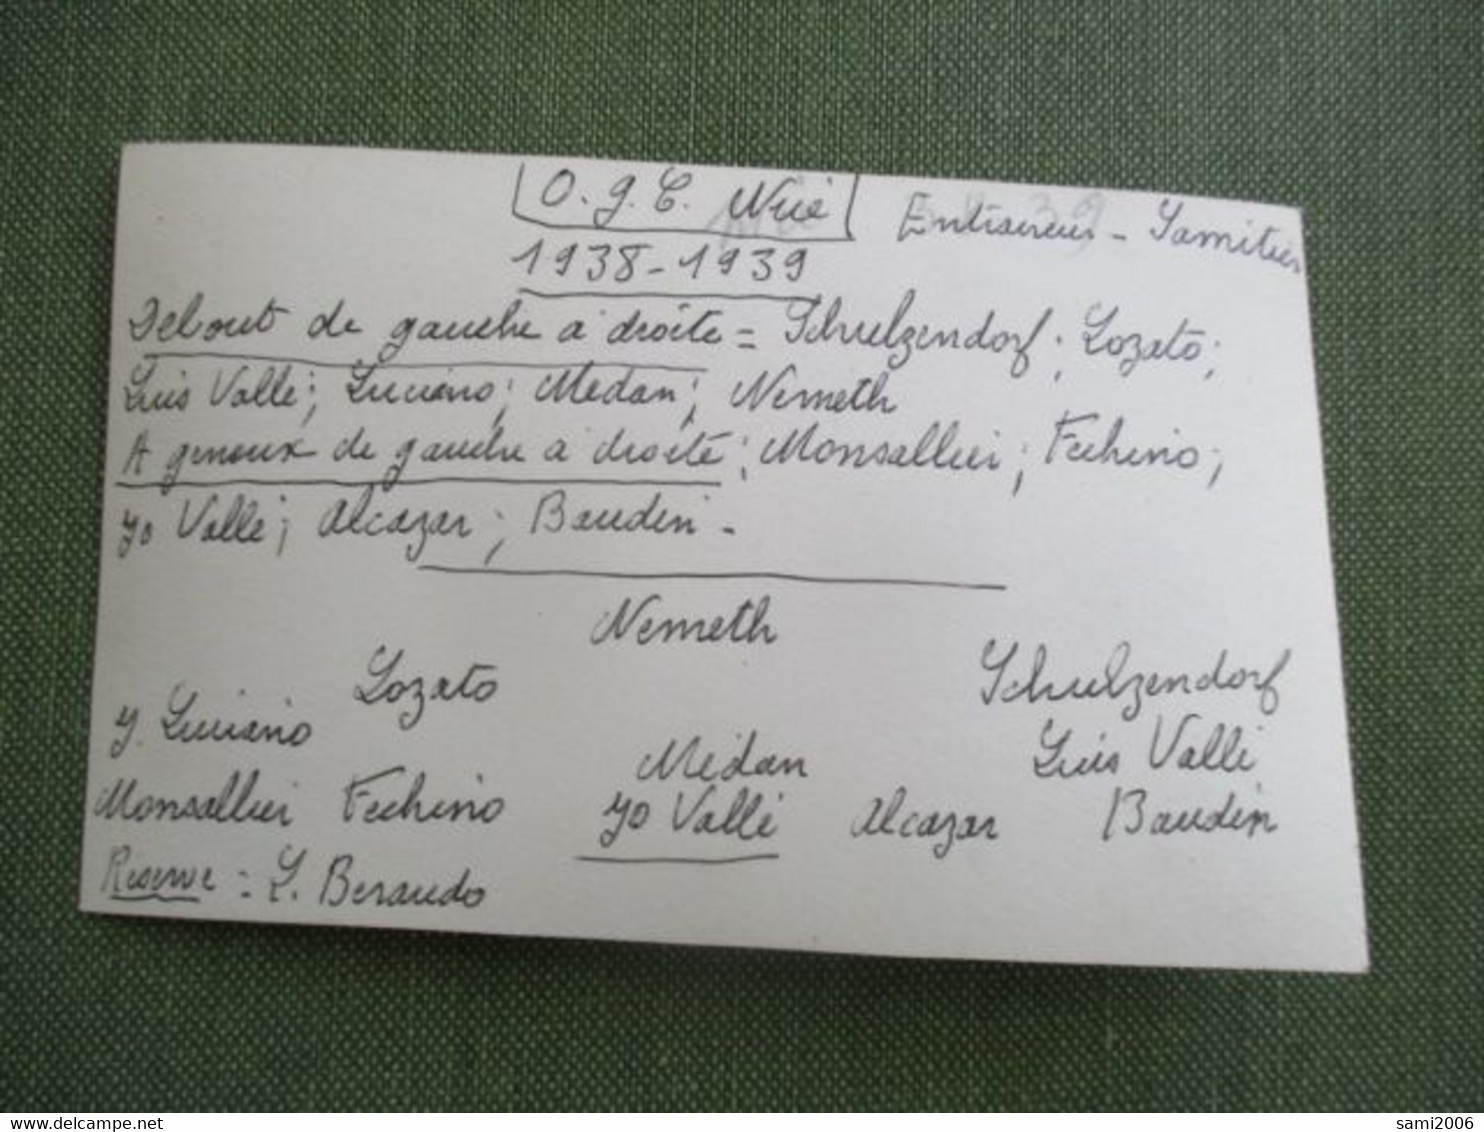 O.G.C. Nice Entraineur - Samitier
1938-1939
Debout de gauche à droite = Schulzendorf; Lozato;
Luis Valle; Luciano; Médan; Nemeth
A genoux de gauche à droite; Monsallier; Fechino;
Yo Valle; Alcazar; Baudin -
Nemeth
Lozato Schulzendorf
Y. Luciano Médan Luis Valle
Monsallier Fechino Yo Valle Alcazar Baudin
Reserve = L. Beraudo
delcampe.net
sami2006